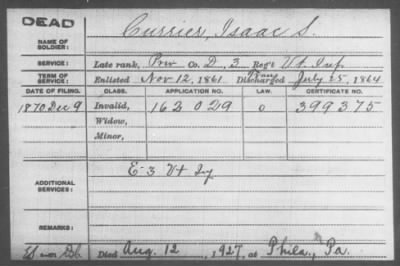 DEAD
NAME OF SOLDIER: Currier, Isaac S.
SERVICE: Late rank, Priv Co. D, 3 Reg't Vt. Inf.
TERM OF SERVICE: Enlisted Nov 12, 1861 Discharged July 25, 1864
DATE OF FILING. CLASS. APPLICATION NO. LAW. CERTIFICATE NO.
1870 Dec 9 Invalid, 162029 0 399375
Widow,
Minor,
ADDITIONAL SERVICES: E 3 Vt
REMARKS:
Died Aug. 12, 1927, at Phila, Pa.